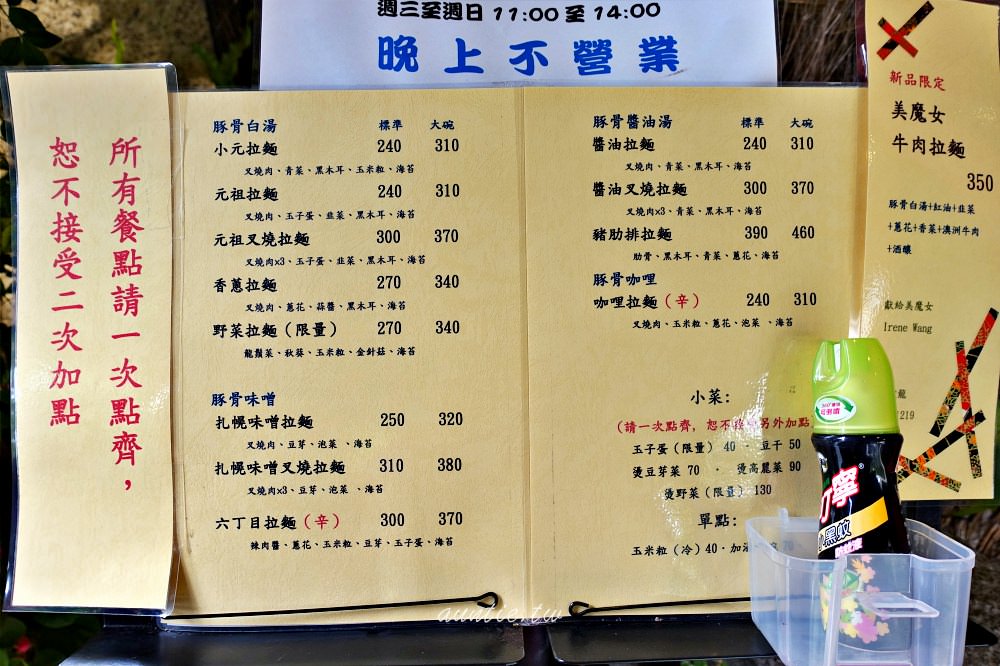 週三至週日 11:00 至 14:00
晚上不營業
所有餐點請一次點齊，
恕不接受二次加點
豚骨白湯 標準 大碗
小元拉麵 240 310
叉燒肉、青菜、黑木耳、玉米粒、海苔
元祖拉麵 240 310
叉燒肉、玉子蛋、韭菜、黑木耳、海苔
元祖叉燒拉麵 300 370
叉燒肉x3、玉子蛋、韭菜、黑木耳、海苔
香蔥拉麵 270 340
叉燒肉、蔥花、蒜醬、黑木耳、海苔
野菜拉麵（限量） 270 340
龍鬚菜、秋葵、玉米粒、金針菇、海苔
豚骨味噌
扎幌味噌拉麵 250 320
叉燒肉、豆芽、泡菜 、海苔
扎幌味噌叉燒拉麵 310 380
叉燒肉x3、豆芽、泡菜 、海苔
六丁目拉麵（辛） 300 370
辣肉醬、蔥花、玉米粒、豆芽、玉子蛋、海苔
豚骨醬油湯 標準 大碗
醬油拉麵 240 310
叉燒肉、青菜、黑木耳、海苔
醬油叉燒拉麵 300 370
叉燒肉x3、青菜、黑木耳、海苔
豬肋排拉麵 390 460
肋骨、黑木耳、青菜、蔥花、海苔
豚骨咖哩
咖哩拉麵（辛） 240 310
叉燒肉、玉米粒、蔥花、泡菜 、海苔
小菜：
（請一次點齊，恕不接受另外加點
玉子蛋（限量） 40 · 豆干 50
燙豆芽菜 70 · 燙高麗菜 90
燙野菜（限量） 130
單點：
玉米粒（冷）40·加
新品限定
美魔女
牛肉拉麵
350
豚骨白湯+紅油+韭菜
+蔥花+香菜+澳洲牛肉
+酒釀
獻給美魔女
Irene Wang
龍
219
可倒噴
寧
黑蚊
auntie.tw